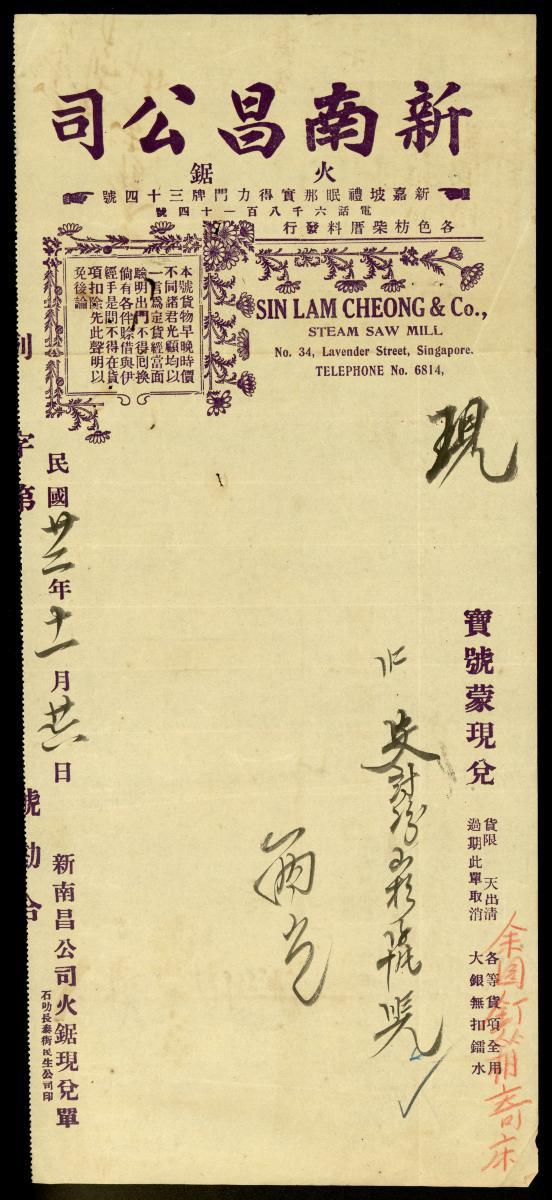 新南昌公司
火鋸
新嘉坡禮眠那實得力門牌三十四號
電話六千八百一十四號
各色枋柴厝料發行
SIN LAM CHEONG & Co.,
STEAM SAW MILL
No. 34, Lavender Street, Singapore.
TELEPHONE No. 6814,
本號貨物早晚時價
不同諸君光顧均以
一言爲定貨經當面
驗明出門不得回換
倘有各伴賒借與伊
經手是問不得在貨
項扣除先此聲明以
免後論
現
寶號蒙現兌
貨限 天出清
過期此單取消
各等貨項全用
大銀無扣鐳水
民國廿三年十一月廿六日
新南昌公司火鋸現兌單
石叻長泰街民生公司印
字第
號勘合